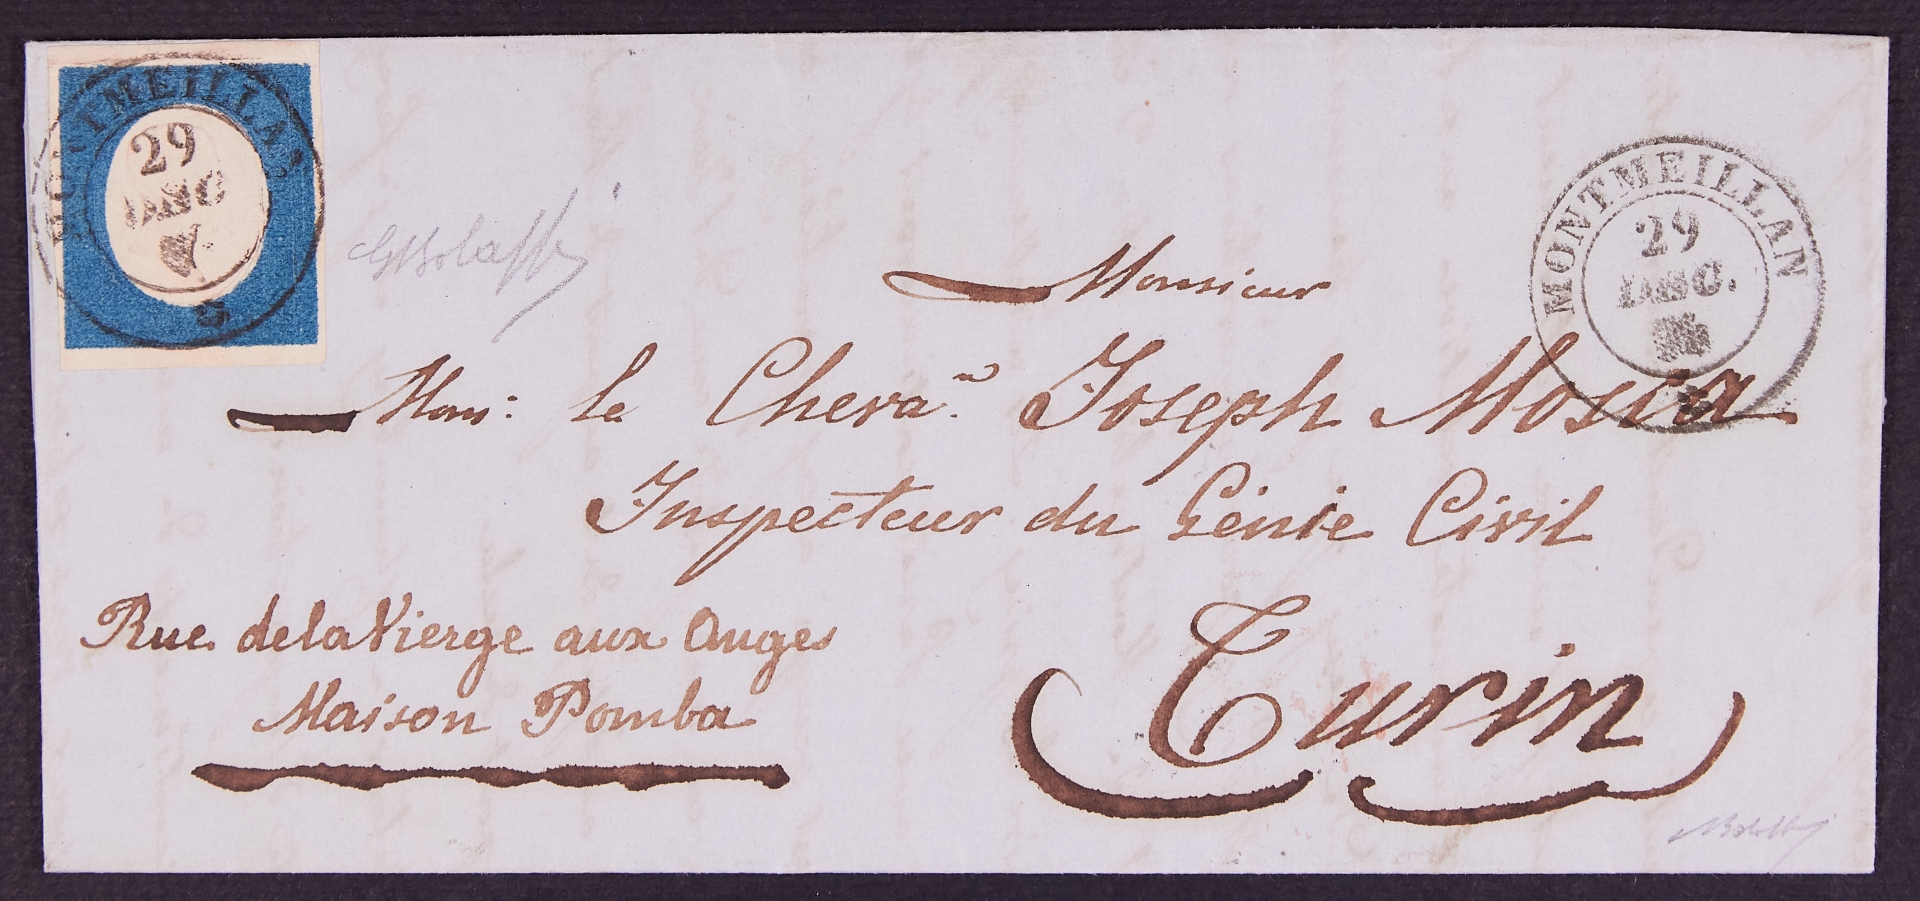 MONTMEILLAN
29
DEC.
GBolaffi
MONTMEILLAN
29
DEC.
Monsieur
Mons: le Cheva.r Joseph Mosca
Inspecteur du Génie Civil
Rue de la Vierge aux Anges
Maison Pomba
Turin